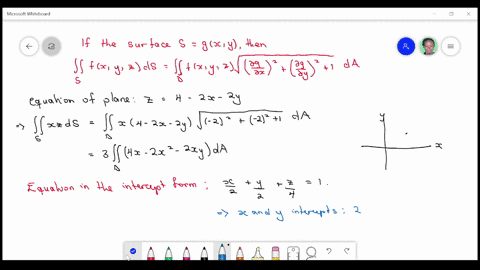 Microsoft Whiteboard
If the surface S = g(x,y), then
∬_S f(x,y,z) dS = ∬_D f(x,y,z) √((∂g/∂x)² + (∂g/∂y)² + 1) dA
equation of plane: z = 4 - 2x - 2y
⇒ ∬_S xz dS = ∬_D x (4 - 2x - 2y) √((-2)² + (-2)² + 1) dA
= 3 ∬_D (4x - 2x² - 2xy) dA
y
x
Equation in the intercept form : x/2 + y/2 + z/4 = 1.
⇒ x and y intercepts : 2